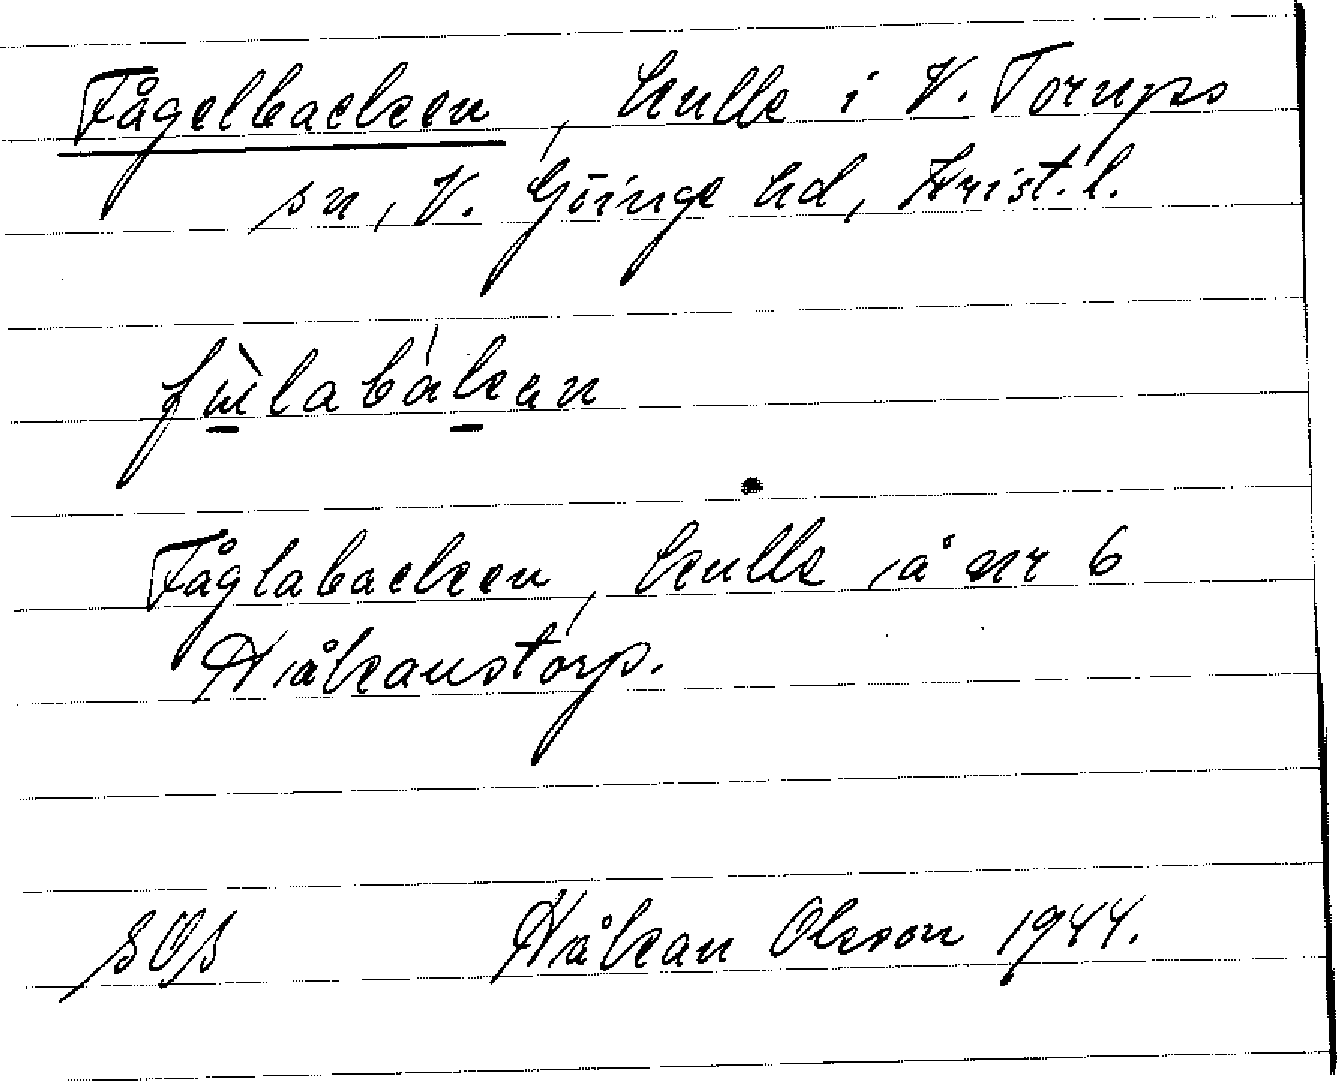 Fågelbacken, kulle i V. Torups
sn, V. Göinge hd, Krist. l.
Fåglabacken, kulle å nr 6
Håkanstorp.
SOS Håkan Olsson 1944.